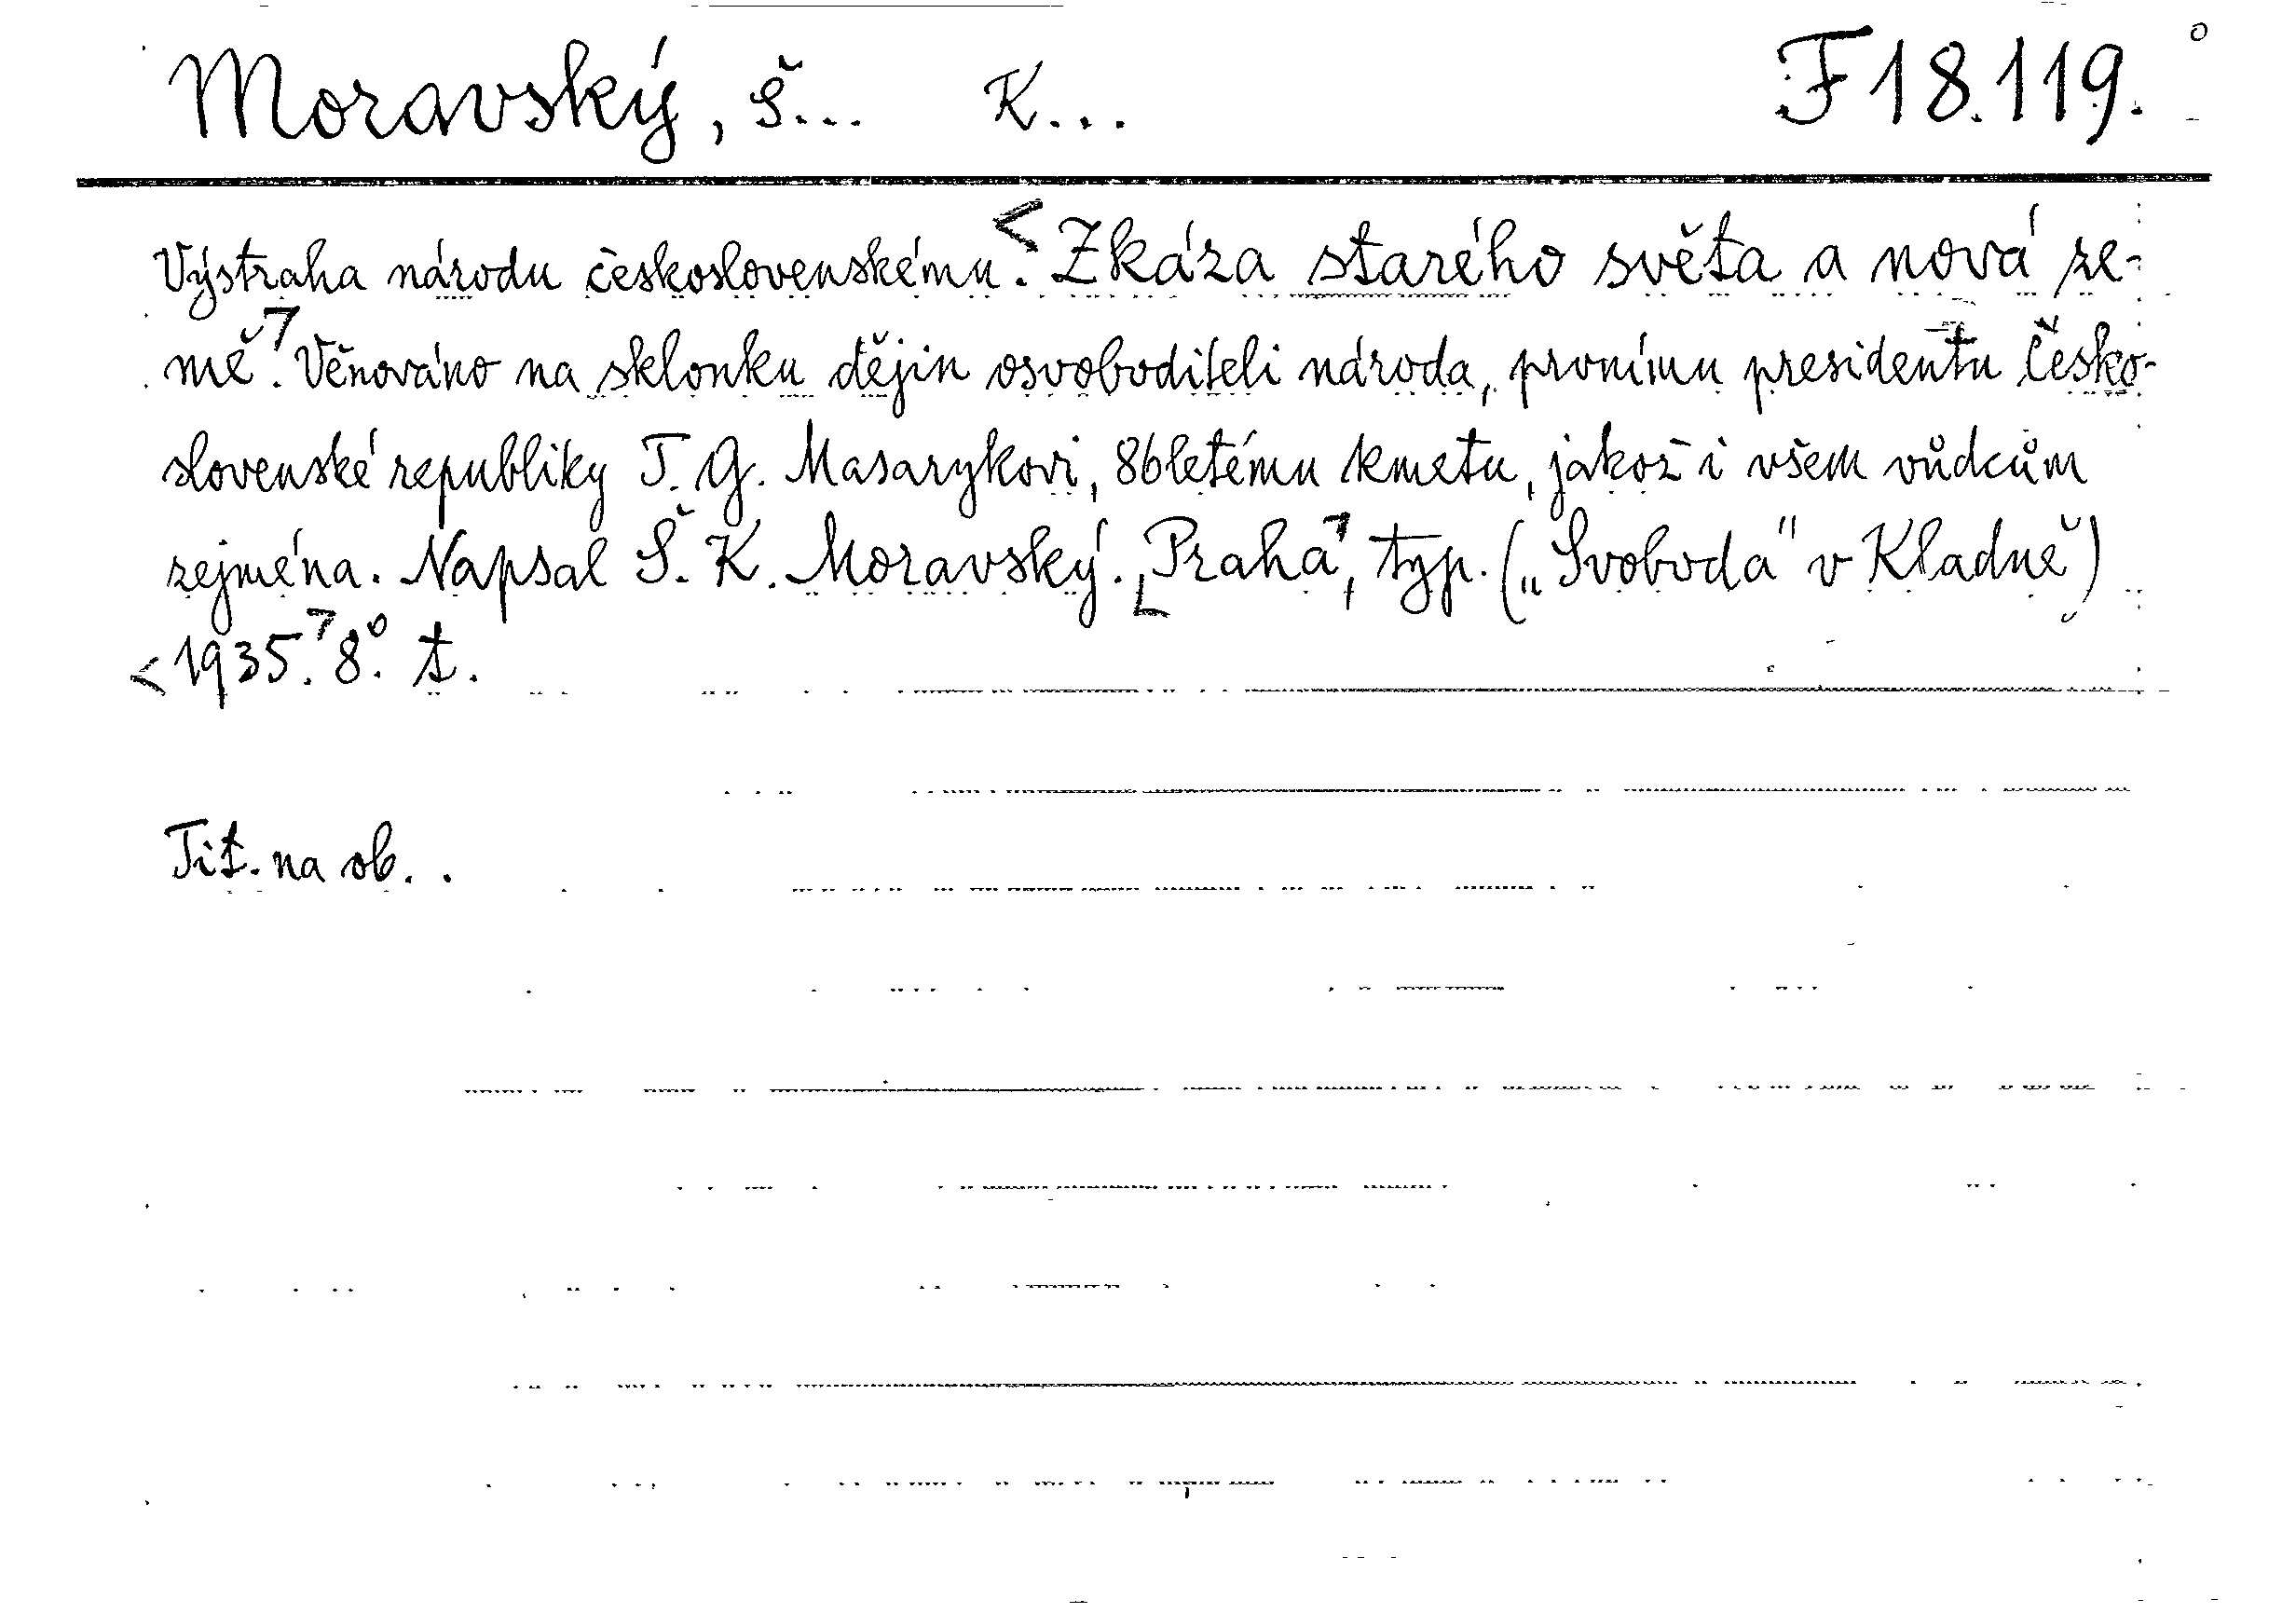 Moravský, Š... K... F 18.119.
Výstraha národu československému. <Zkáza starého světa a nová ze-
mě.> Věnováno na sklonku dějin osvoboditeli národa, prvnímu presidentu Česko-
slovenské republiky T. G. Masarykovi, 86letému kmetu, jakož i všem vůdcům
zejména. Napsal Š. K. Moravský. [Praha], typ. („Svoboda“ v Kladně)
<1935.> 8°. t.
Tit. na ob. .